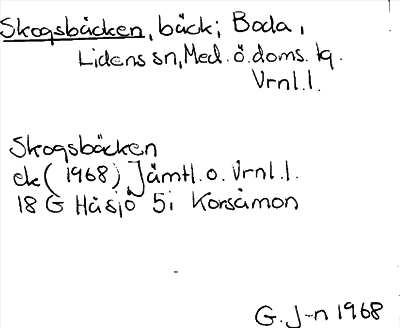 Skogsbäcken, bäck; Boda,
Lidens sn, Med. ö. doms. tg.
Vrnl. l.
Skogsbäcken
ek (1968) Jämtl. o. Vrnl. l.
18 G Håsjö 5i Korsåmon
G. J-n 1968